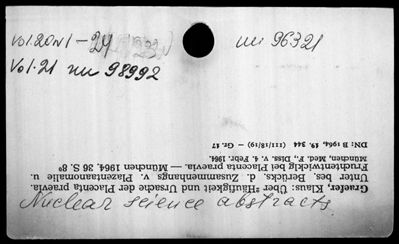 Vol. 20 N 1 - 24 (23)
nu 96321
Vol. 21 nu 98992
Graefer, Klaus: Über Häufigkeit und Ursache der Placenta praevia.
Unter bes. Berücks. d. Zusammenhangs v. Plazentaanomalie u.
Fruchtentwicklg bei Placenta praevia. — München 1964. 36 S. 8°
München, Med. F., Diss. v. 4. Febr. 1964.
DN: B 1964, 19. 344 (111/18/19) – Gr. 17
Nuclear science abstracts